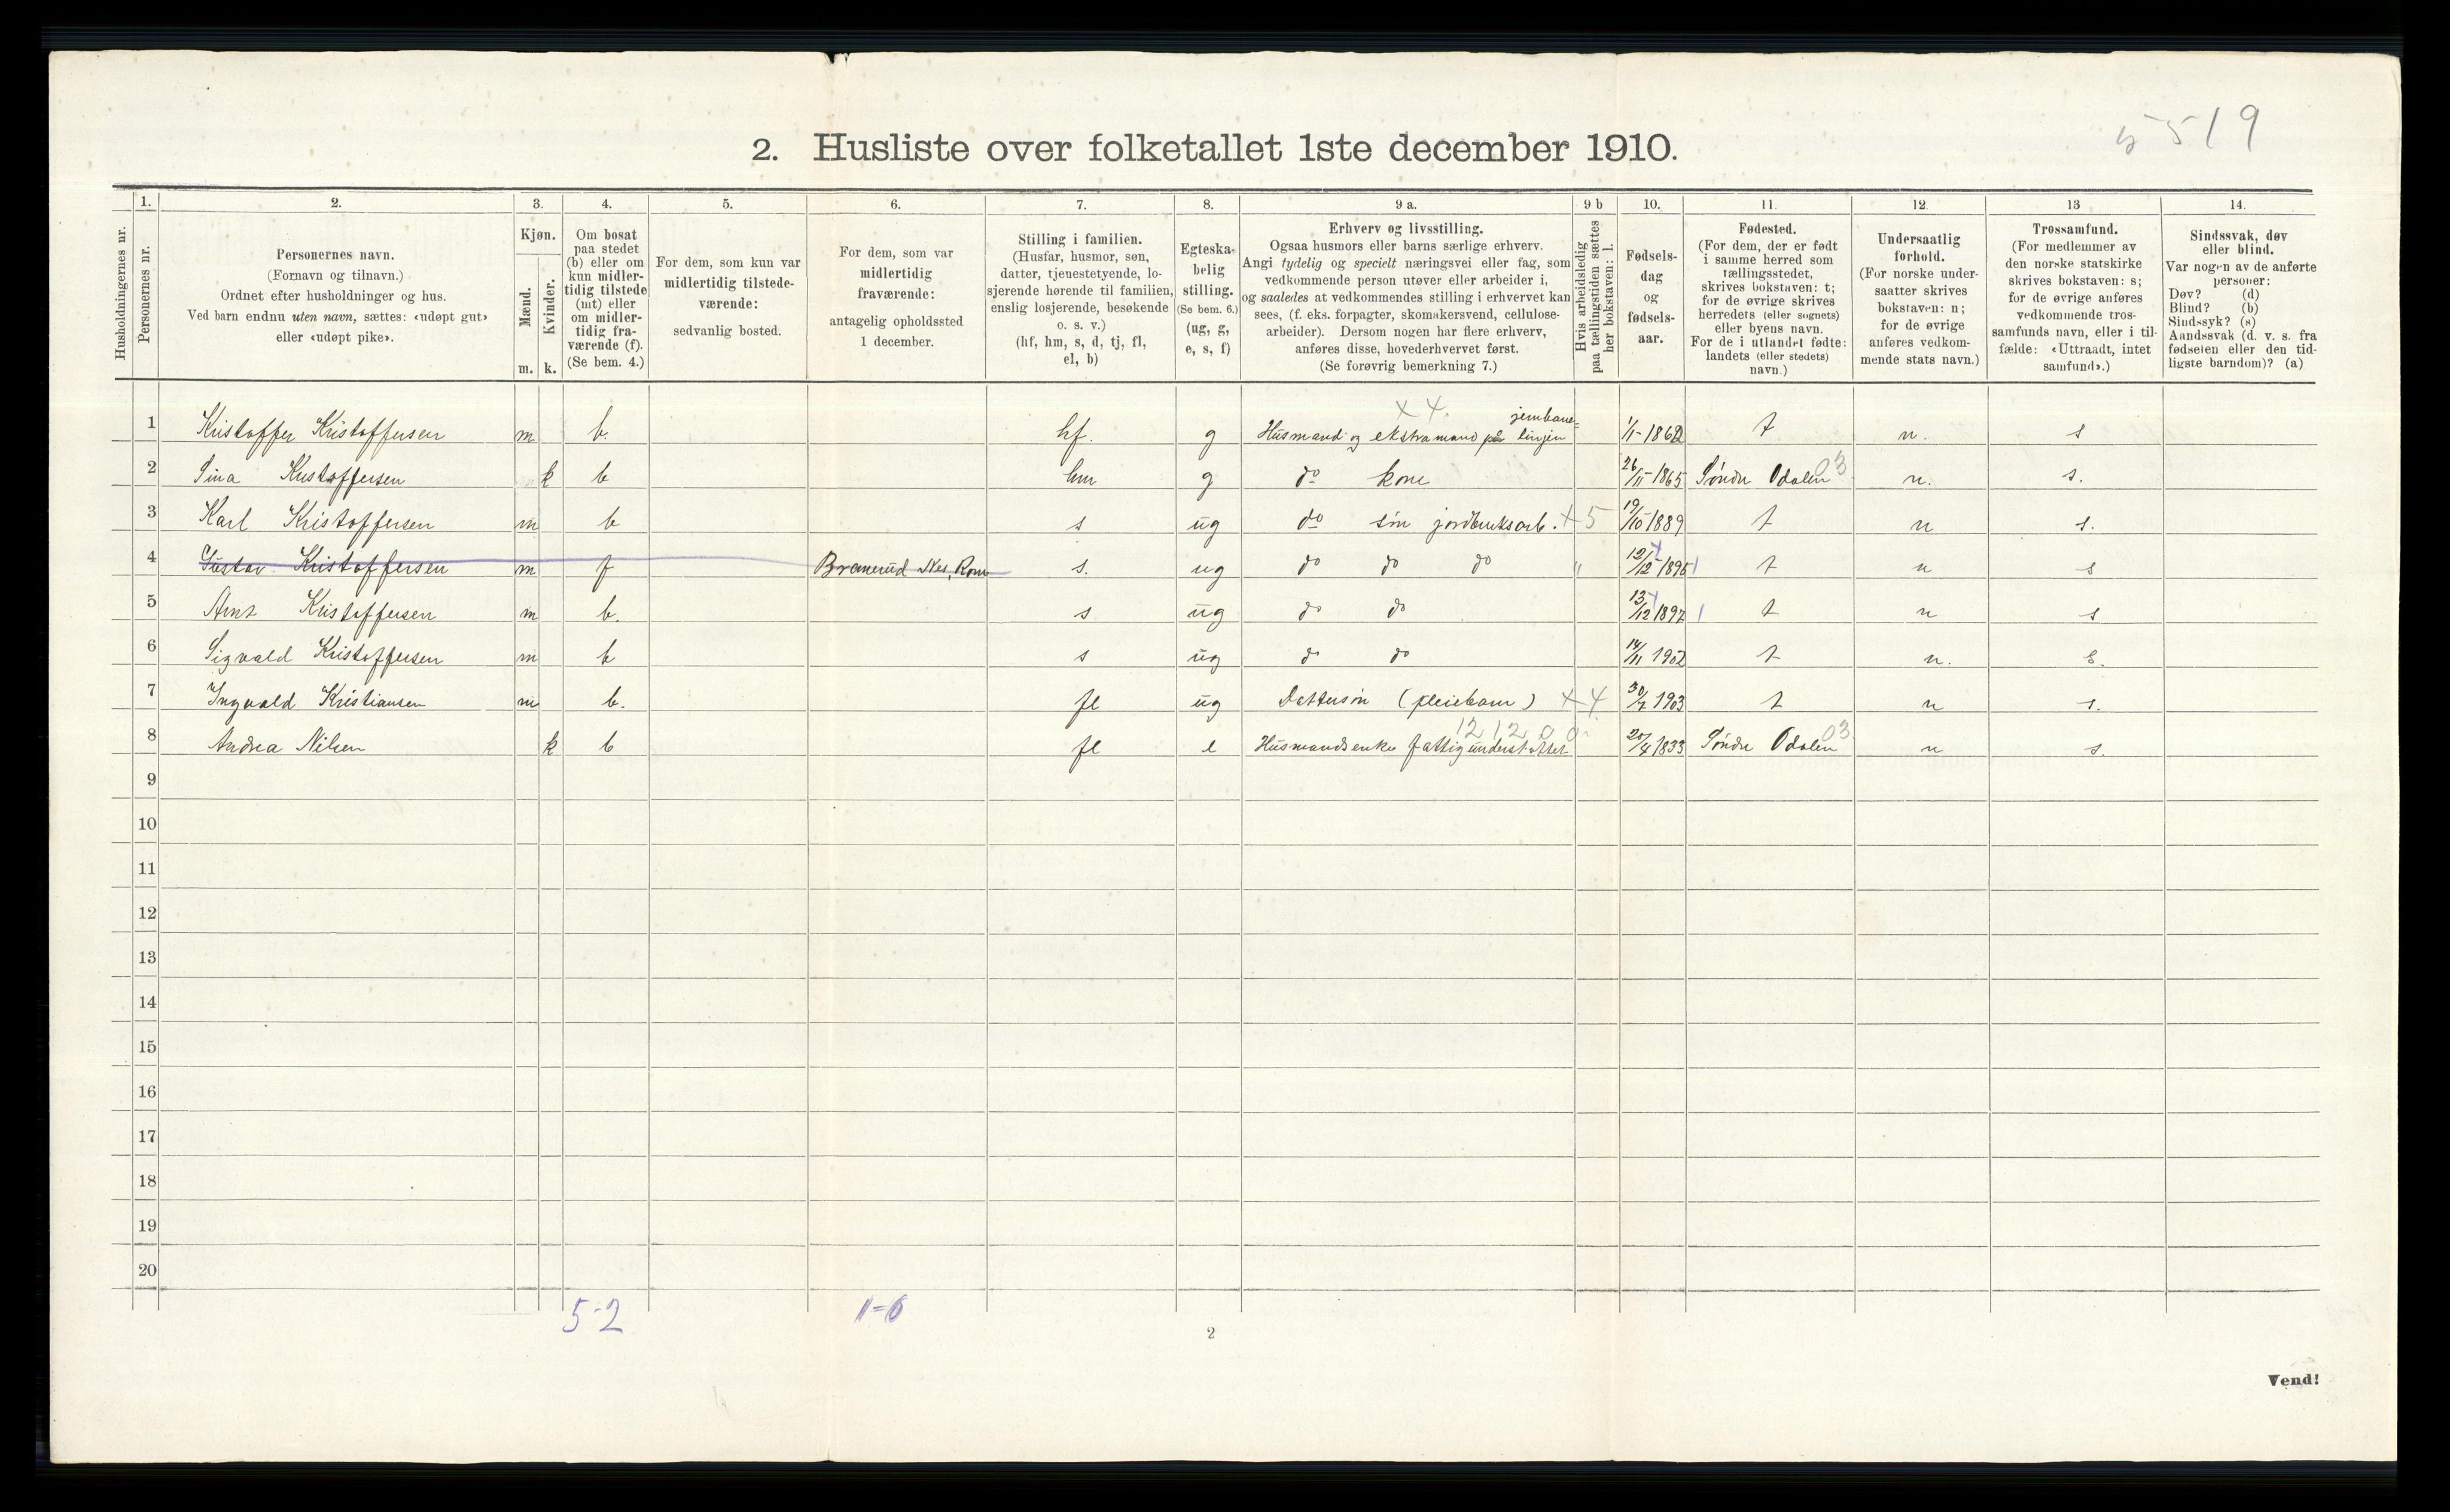 5519
2. Husliste over folketallet 1ste december 1910.
1. 2. 3. 4. 5. 6. 7. 8. 9 a. 9 b 10. 11. 12. 13 14.
Husholdningernes nr.
Personernes nr.
Personernes navn.
(Fornavn og tilnavn.)
Ordnet efter husholdninger og hus.
Ved barn endnu uten navn, sættes: «udøpt gut»
eller «udøpt pike».
Kjøn.
Mænd.
Kvinder.
m. k.
Om bosat
paa stedet
(b) eller om
kun midler-
tidig tilstede
(mt) eller
om midler-
tidig fra-
værende (f).
(Se bem. 4.)
For dem, som kun var
midlertidig tilstede-
værende:
sedvanlig bosted.
For dem, som var
midlertidig
fraværende:
antagelig opholdssted
1 december.
Stilling i familien.
(Husfar, husmor, søn,
datter, tjenestetyende, lo-
sjerende hørende til familien,
enslig losjerende, besøkende
o. s. v.)
(hf, hm, s, d, tj, fl,
el, b)
Egteska-
belig
stilling.
(Se bem. 6.)
(ug, g,
e, s, f)
Erhverv og livsstilling.
Ogsaa husmors eller barns særlige erhverv.
Angi tydelig og specielt næringsvei eller fag, som
vedkommende person utøver eller arbeider i,
og saaledes at vedkommendes stilling i erhvervet kan
sees, (f. eks. forpagter, skomakersvend, cellulose-
arbeider). Dersom nogen har flere erhverv,
anføres disse, hovederhvervet først.
(Se forøvrig bemerkning 7.)
Hvis arbeidsledig
paa tællingstiden sættes
her bokstaven: l.
Fødsels-
dag
og
fødsels-
aar.
Fødested.
(For dem, der er født
i samme herred som
tællingsstedet,
skrives bokstaven: t;
for de øvrige skrives
herredets (eller sognets)
eller byens navn.
For de i utlandet fødte:
landets (eller stedets)
navn.)
Undersaatlig
forhold.
(For norske under-
saatter skrives
bokstaven: n;
for de øvrige
anføres vedkom-
mende stats navn.)
Trossamfund.
(For medlemmer av
den norske statskirke
skrives bokstaven: s;
for de øvrige anføres
vedkommende tros-
samfunds navn, eller i til-
fælde: «Uttraadt, intet
samfund».)
Sindssvak, døv
eller blind.
Var nogen av de anførte
personer:
Døv? (d)
Blind? (b)
Sindssyk? (s)
Aandssvak (d. v. s. fra
fødselen eller den tid-
ligste barndom)? (a)
x 4. jernbane=
1 Kristoffer Kristoffersen m b. hf. g Husmand og ekstramand på linjen 1/1-1862 t n. s
2 Sina Kristoffersen k b hm g do kone 26/11-1865 Søndre Odalen 03 n. s.
3 Karl Kristoffersen m b s ug do søn jordbruksarb. x5 19/10-1889 t n s.
4 Gustav Kristoffersen m f Branerud Nes, Rom s. ug do do do " 12/12-1895 t n s
5 Arnt Kristoffersen m b. s ug do do 13/12 1897 t n s
6 Sigvald Kristoffersen m b s ug do do 14/11 1902 t n. s.
7 Ingvald Kristiansen m b. fl ug Dattersøn (pleiebarn) x4 30/7 1903 t n s.
1212 0 0
8 Andrea Nilsen k b fl e Husmandsenke fattigunderstøttet 20/4 1833 Søndre Odalen 03 n s.
9
10
11
12
13
14
15
16
17
18
19
20
5-2 1-0
2
Vend!